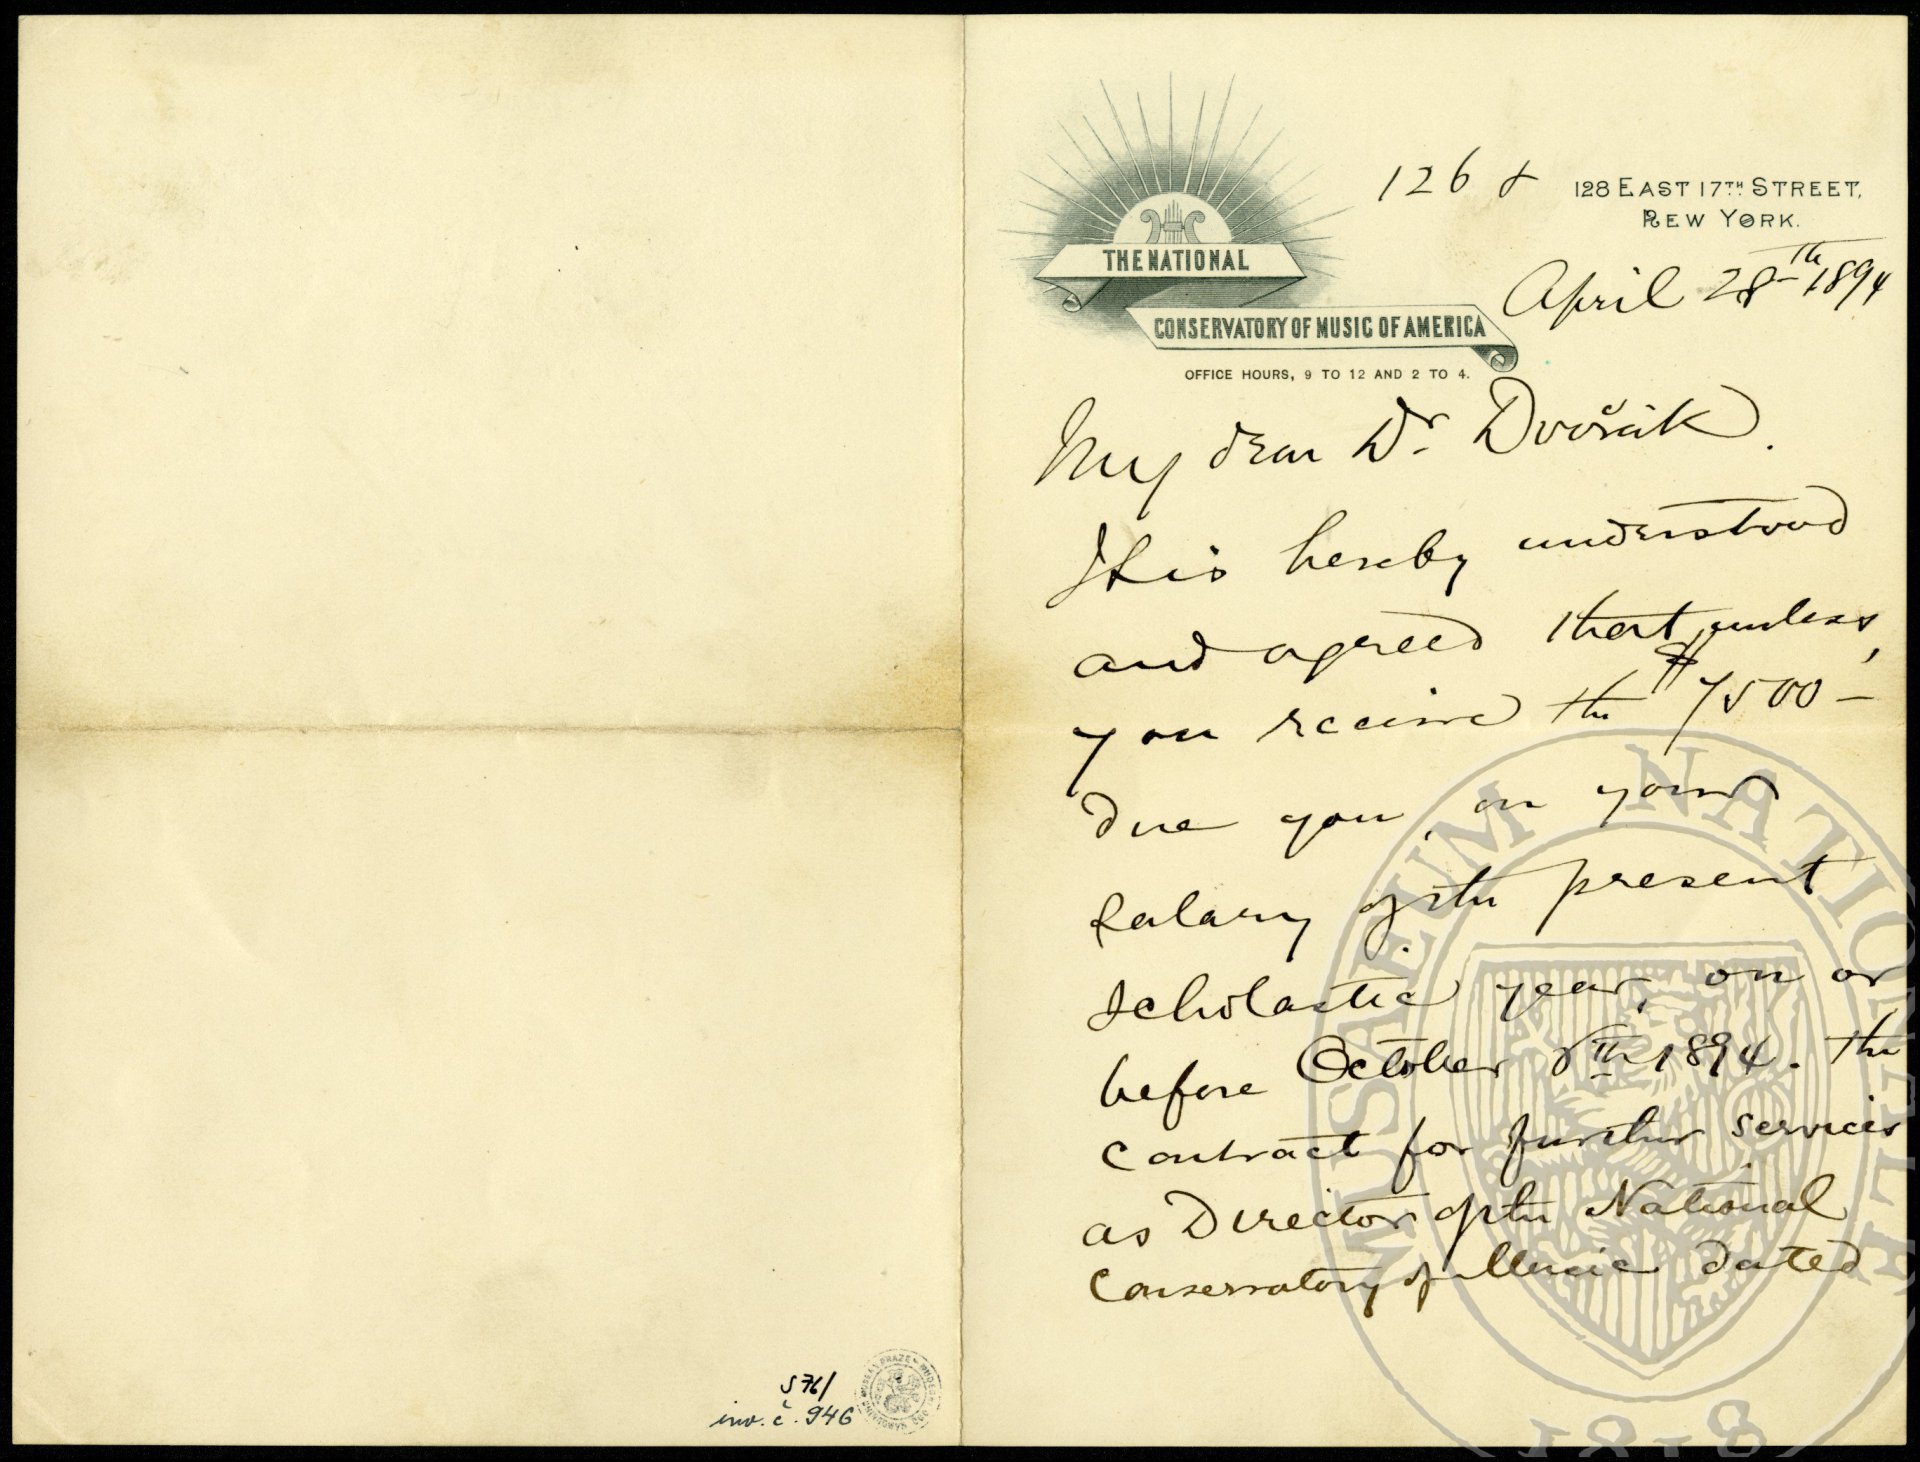 126 & 128 EAST 17TH STREET,
NEW YORK.
THE NATIONAL
CONSERVATORY OF MUSIC OF AMERICA
OFFICE HOURS, 9 TO 12 AND 2 TO 4.
April 28th 1894
My dear Dr Dvořák.
It is hereby understood
and agreed that, unless,
you receive the $7500–
due you, on your
salary of the present
scholastic year, on or
before October 8th 1894. the
contract for further services
as Director of the National
Conservatory of Music dated
S 76/
inv. č. 946
MUSAEUM NATIONALE
1818